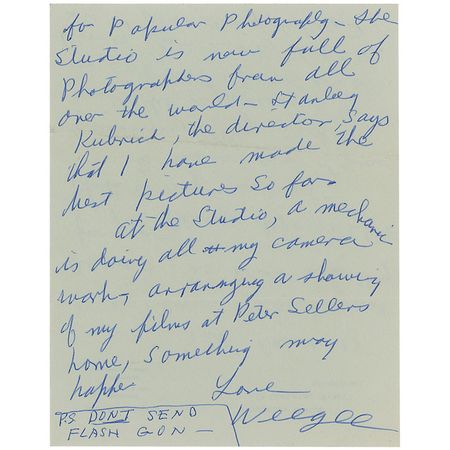 for Popular Photography - the
Studio is now full of
Photographers from all
over the world - Stanley
Kubrick, the director, says
that I have made the
best pictures so far.
at the Studio, a mechanic
is doing all my camera
work, arranging a showing
of my films at Peter Sellers
home, something may
happe
Love
Weegee
P.S DONT SEND
FLASH GON —